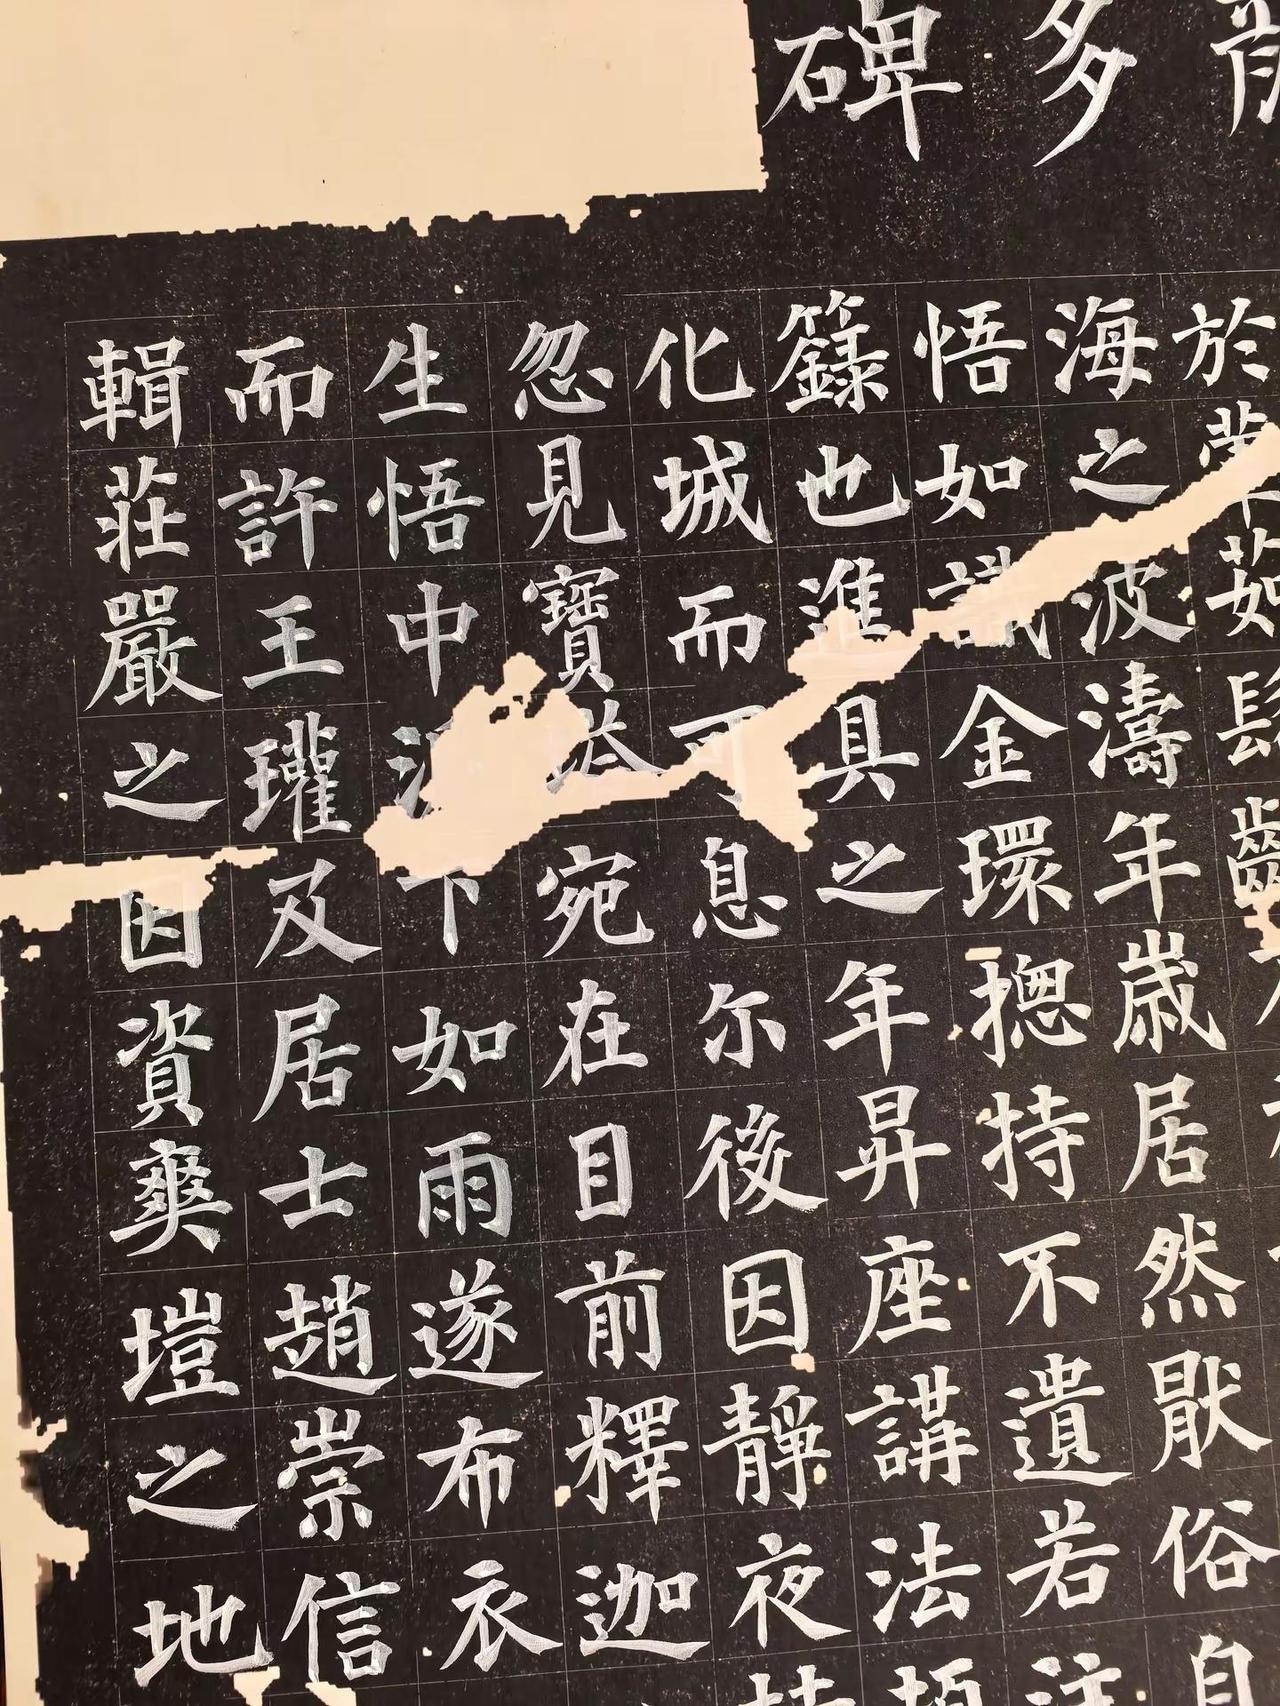 多
碑
於茹
海之波濤年歲居然猒俗自
悟如識金環揔持不遺若注
籙也進具之年昇座講法頓
化城而可息尔後因靜夜持
忽見寶塔宛在目前釋迦
生悟中下如雨遂布衣
而許王瓘及居士趙崇信
輯莊嚴之因資爽塏之地